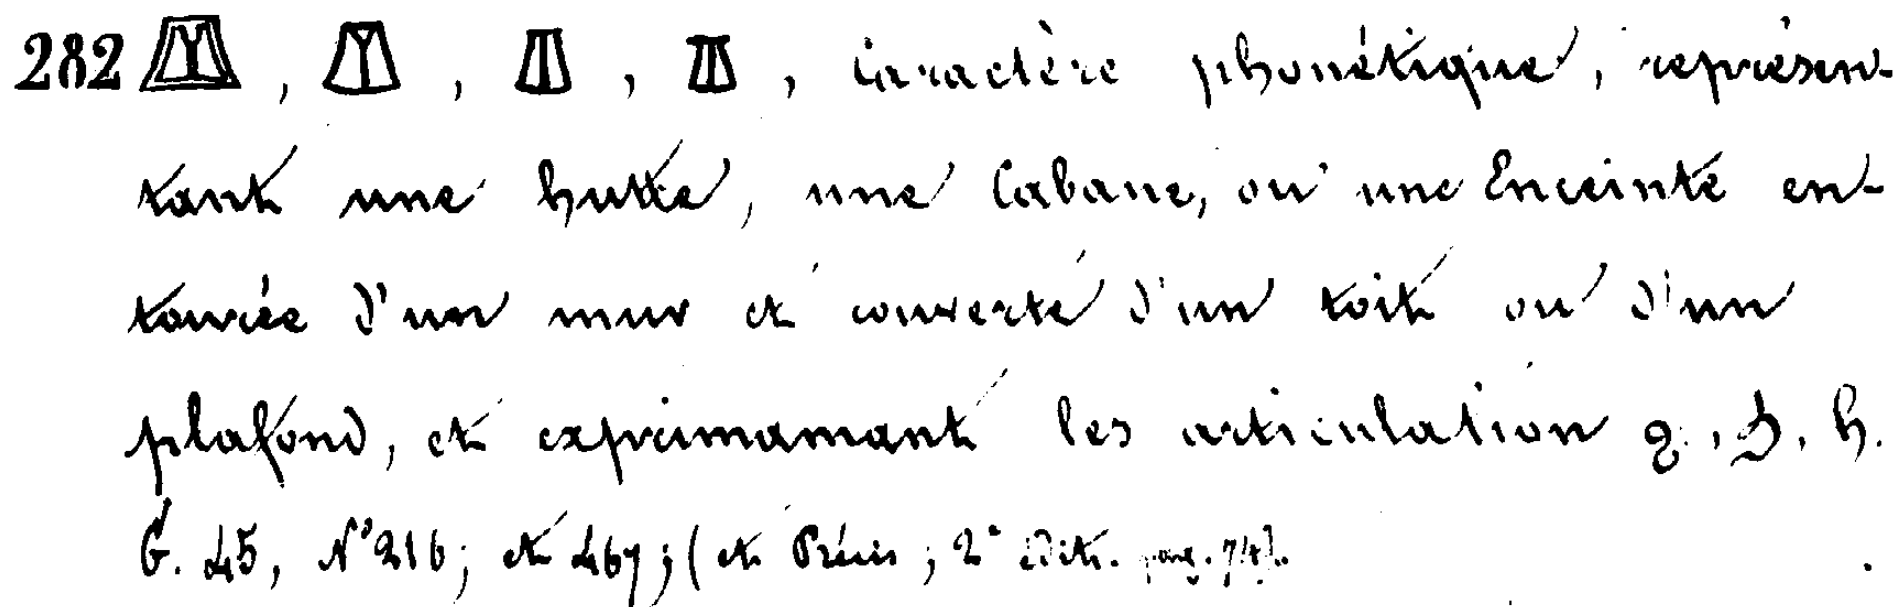 282 , , , , Caractère phonétique, représen-
tant une hutte, une Cabane, ou une Enceinte en-
tourée d'un mur et couverte d'un toit ou d'un
plafond, et exprimamant les articulation ϩ. , ϧ. h.
G. 45, N° 216; et 467; (et Précis; 2e édit. pag. 74).